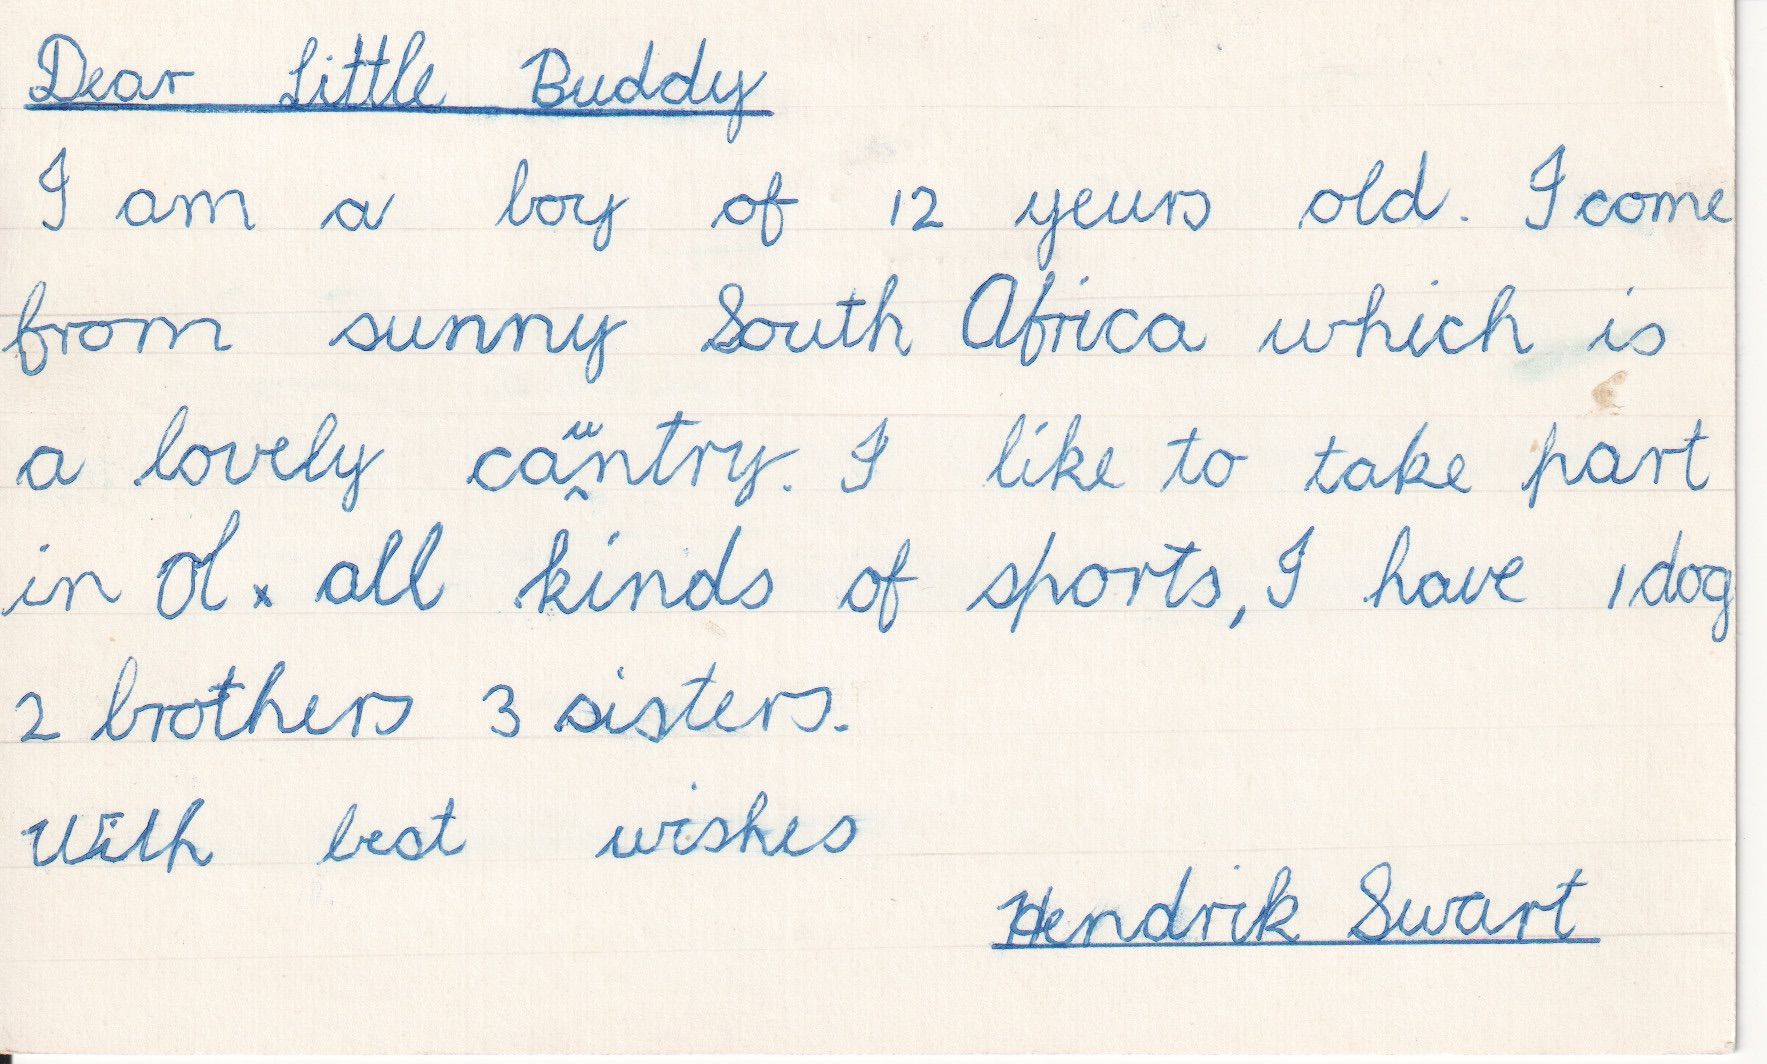 Dear Little Buddy
I am a boy of 12 years old. I come
from sunny South Africa which is
a lovely country. I like to take part
in ol x all kinds of sports, I have 1 dog
2 brothers 3 sisters.
With best wishes
Hendrik Swart